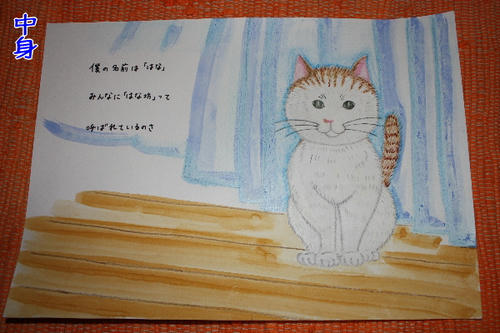 中身
僕の名前は「はな」
みんなに「はな坊」って
呼ばれているのさ